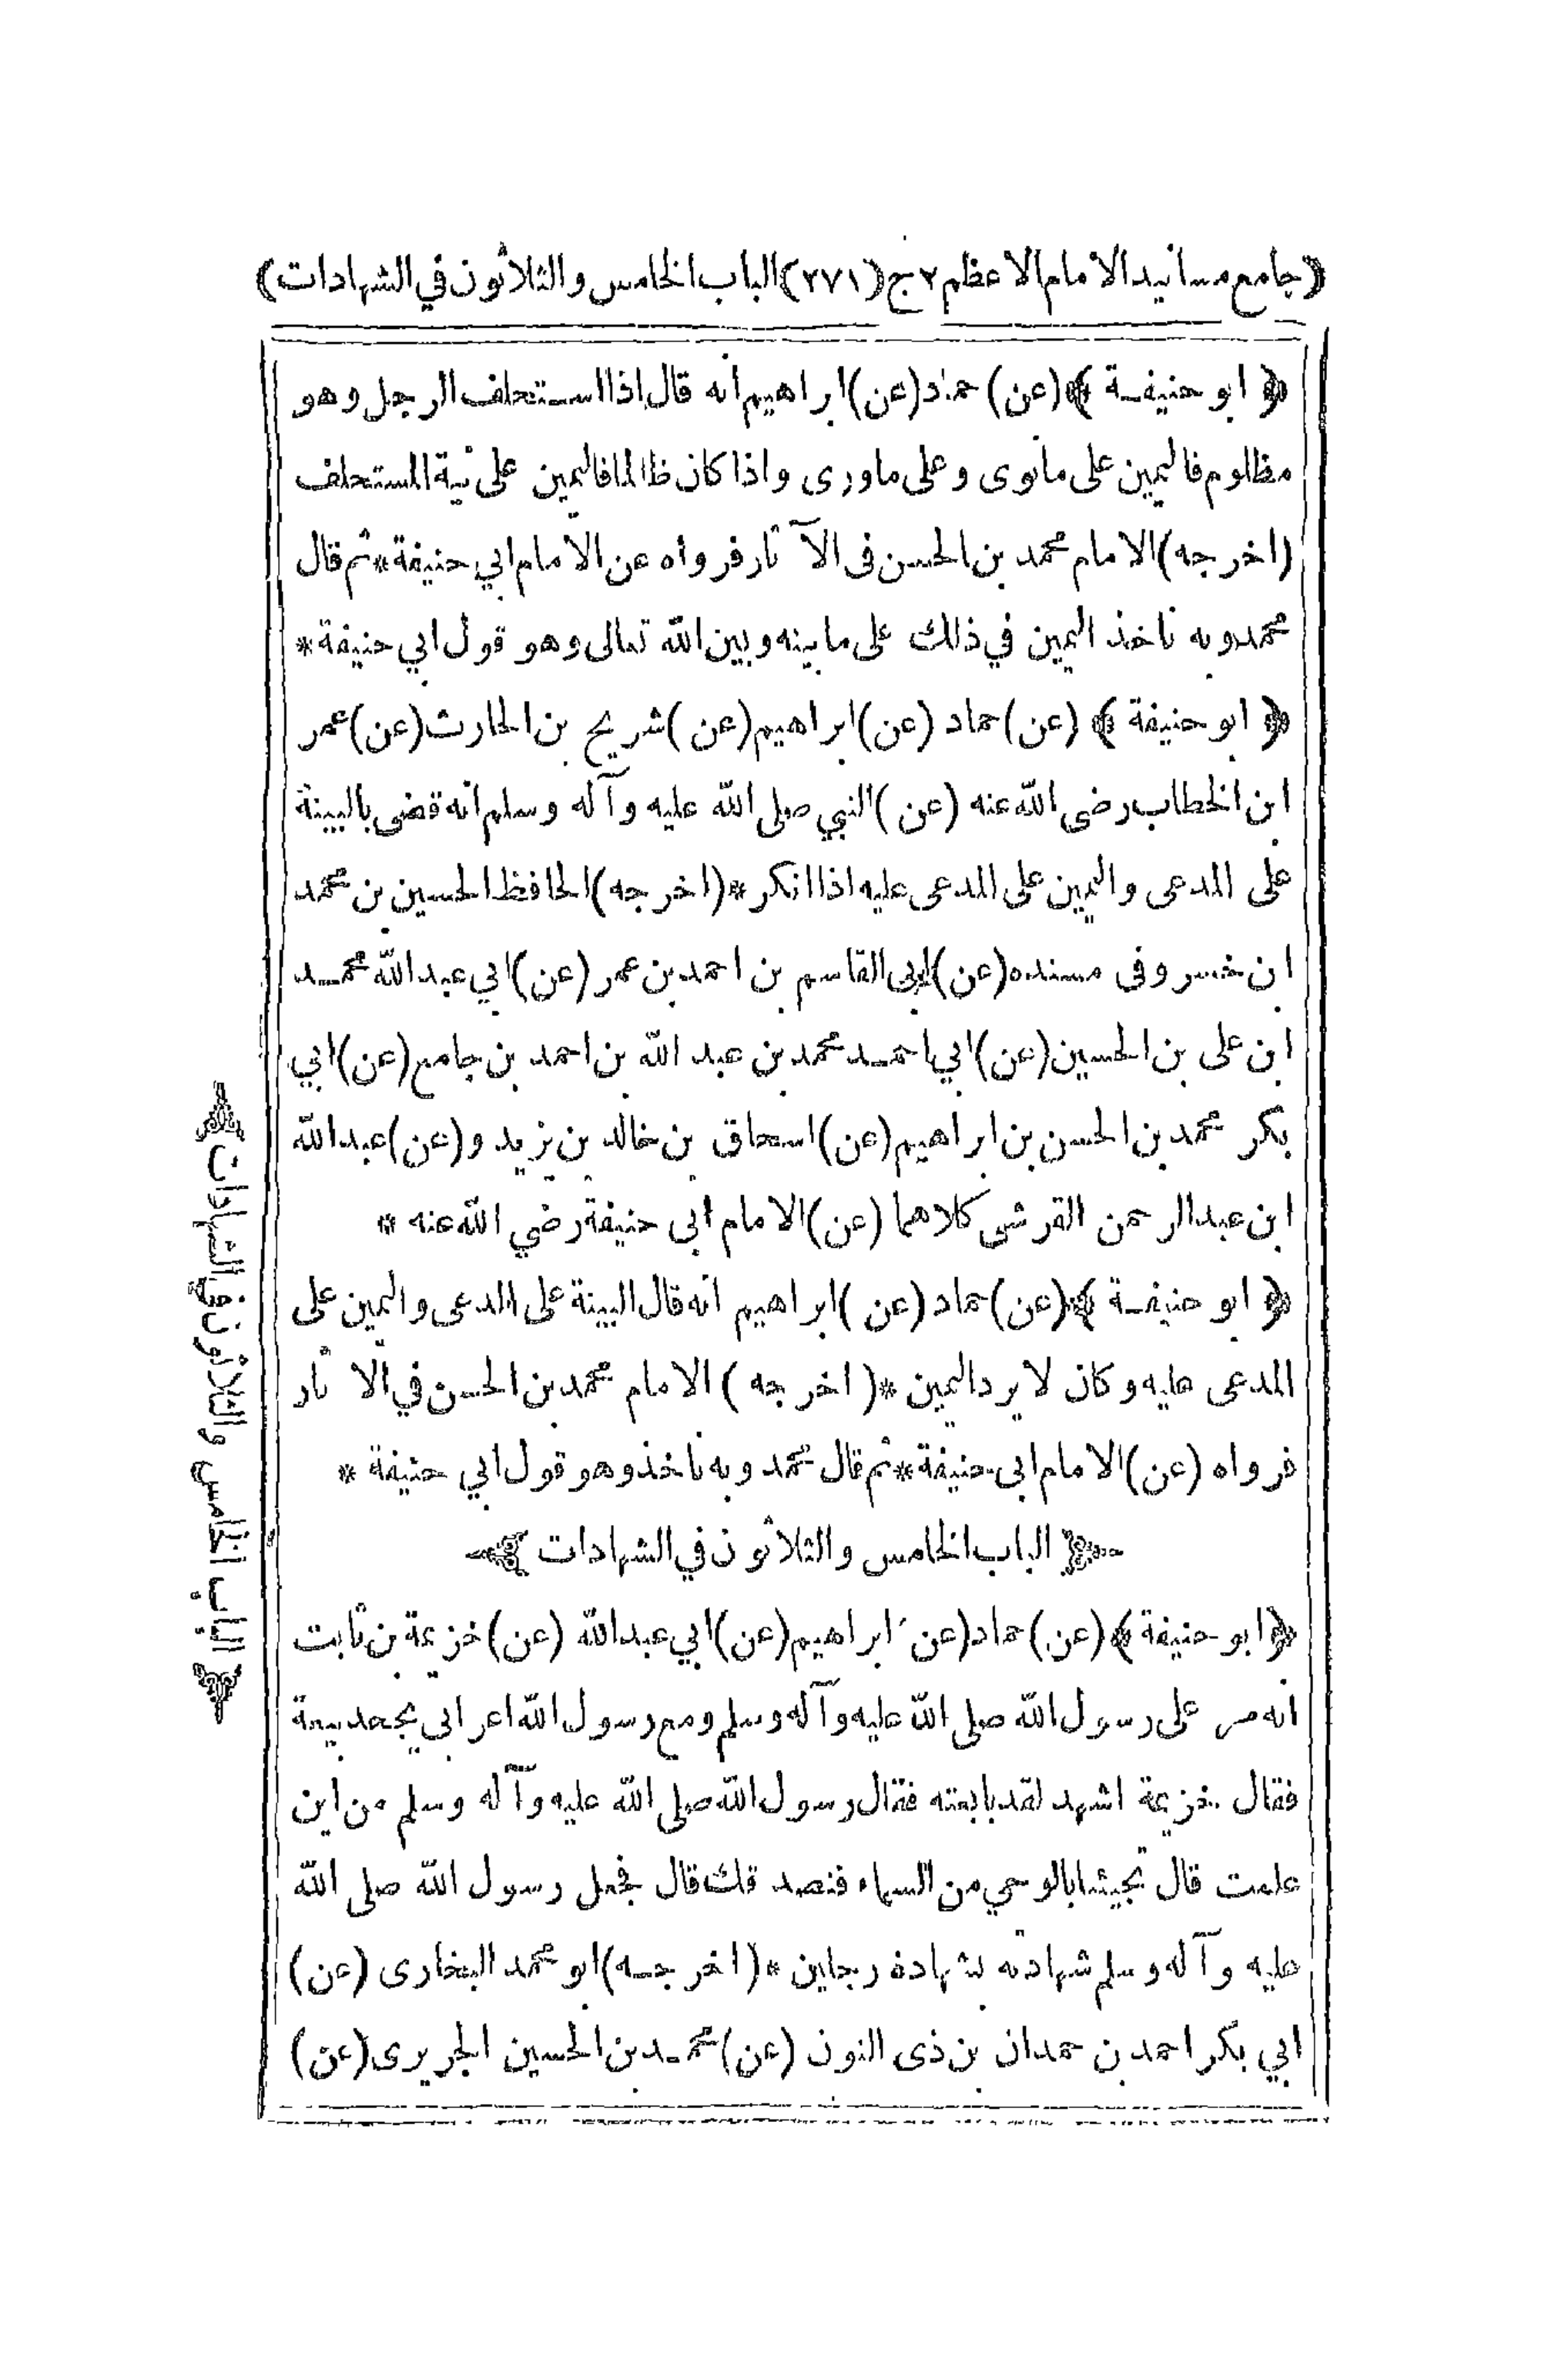 (جامع مسانيد الامام الاعظم ٢ ج (٢٧١) الباب الخامس والثلاثون في الشهادات)
﴿ ابو حنيفة ﴾ (عن) حماد (عن) ابراهيم انه قال اذا استحلف الرجل وهو
مظلوم فاليمين على مانوى وعلى ماورى واذا كان ظالما فاليمين على نية المستحلف
(اخرجه) الامام محمد بن الحسن فى الآثار فرواه عن الامام ابي حنيفة * ثم قال
محمد وبه ناخذ اليمين في ذلك على مابينه وبين الله تعالى وهو قول ابي حنيفة *
﴿ ابو حنيفة ﴾ (عن) حماد (عن) ابراهيم (عن) شريح بن الحارث (عن) عمر
ابن الخطاب رضى الله عنه (عن) النبي صلى الله عليه وآله وسلم انه قضى بالبينة
على المدعى واليمين على المدعى عليه اذا انكر * (اخرجه) الحافظ الحسين بن محمد
ابن خسرو فى مسنده (عن) ابى القاسم بن احمد بن عمر (عن) ابي عبد الله محمد
ابن على بن الحسين (عن) ابي احمد محمد بن عبد الله بن احمد بن جامع (عن) ابي
بكر محمد بن الحسن بن ابراهيم (عن) اسحاق بن خالد بن يزيد و (عن) عبد الله
ابن عبد الرحمن القرشى كلاهما (عن) الامام ابى حنيفة رضي الله عنه *
﴿ ابو حنيفة ﴾ (عن) حماد (عن) ابراهيم انه قال البينة على المدعى واليمين على
المدعى عليه وكان لا يرد اليمين * (اخرجه) الامام محمد بن الحسن في الاثار
فرواه (عن) الامام ابى حنيفة * ثم قال محمد وبه ناخذ وهو قول ابي حنيفة *
الباب الخامس والثلاثون في الشهادات
﴿ ابو حنيفة ﴾ (عن) حماد (عن ابراهيم (عن) ابي عبد الله (عن) خزيمة بن ثابت
انه مر على رسول الله صلى الله عليه وآله وسلم ومع رسول الله اعرابي يجحد بيعة
فقال خزيمة اشهد لقد بايعته فقال رسول الله صلى الله عليه وآله وسلم من اين
علمت قال تجيئنا بالوحي من السماء فنصدقك قال فجعل رسول الله صلى الله
عليه وآله وسلم شهادته بشهادة رجلين * (اخرجه) ابو محمد البخارى (عن)
ابي بكر احمد بن حمدان بن ذى النون (عن) محمد بن الحسين الجريرى (عن)
الباب الخامس والثلاثون في الشهادات